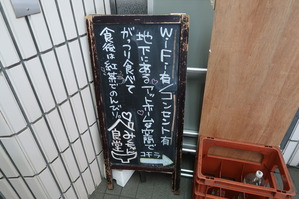 WiFi有 コンセント有
地下にある アットホームな空間で
がっつり食べて
食後は紅茶でのんびり
みちる食堂
コチラ